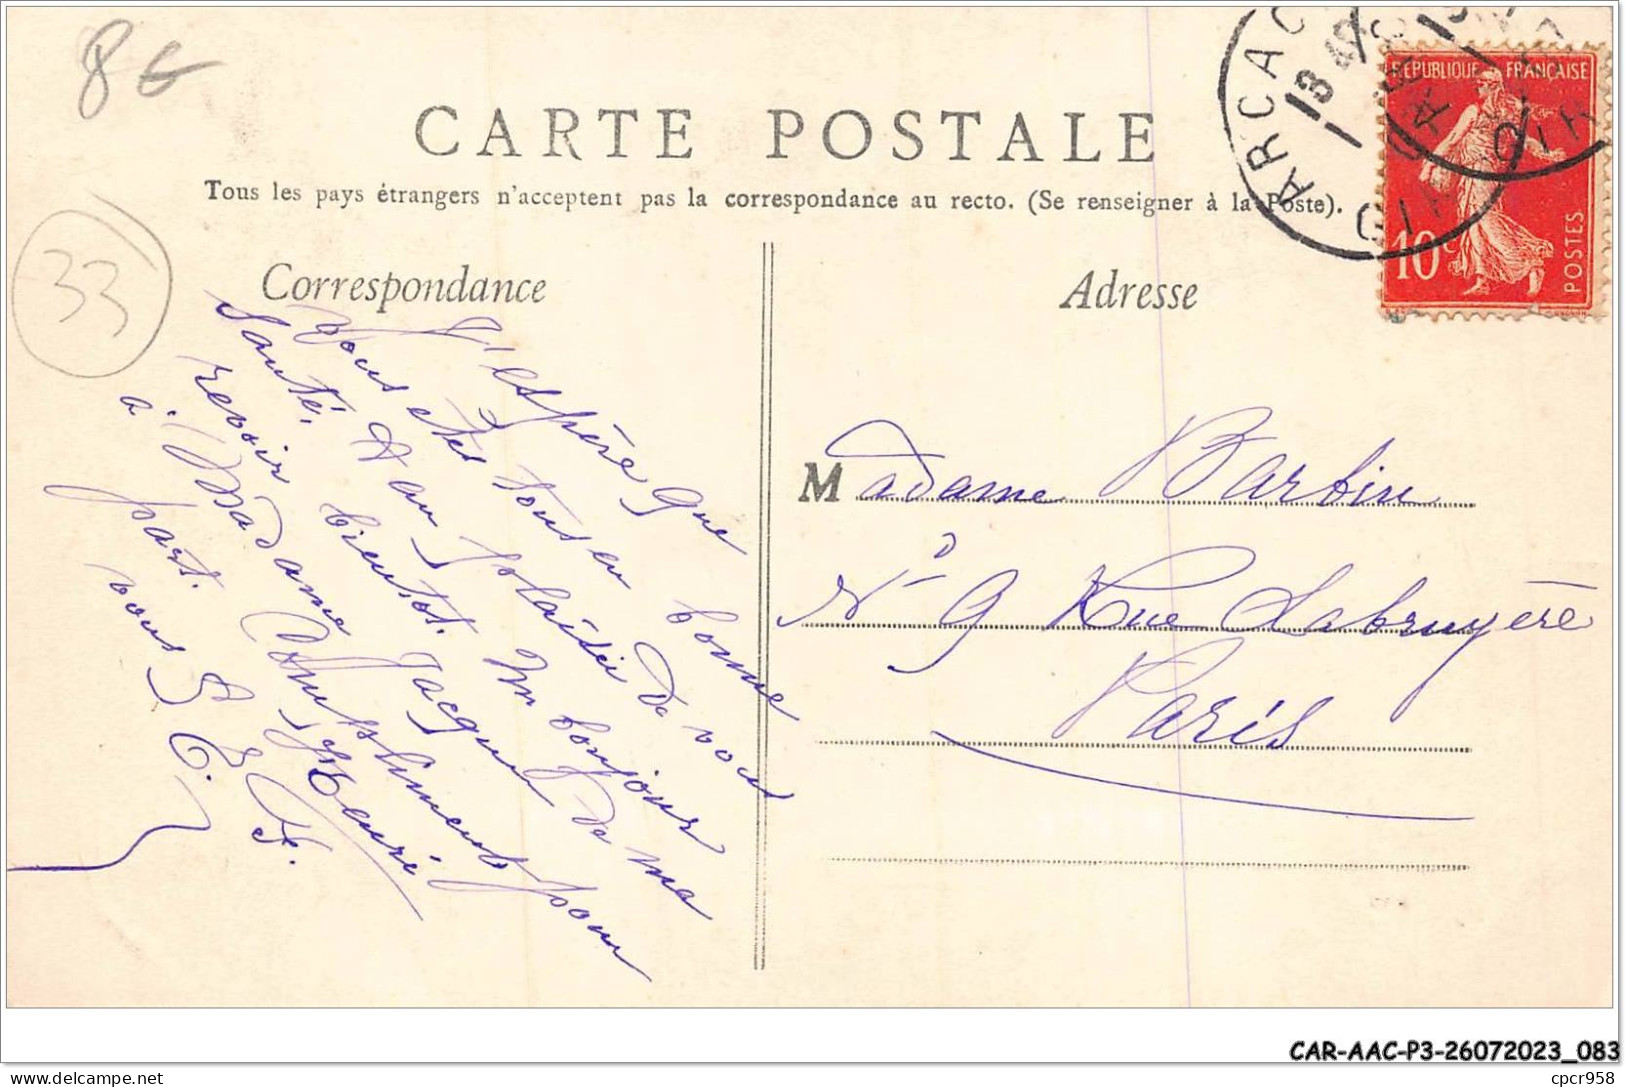 8 €
33
CARTE POSTALE
Tous les pays étrangers n'acceptent pas la correspondance au recto. (Se renseigner à la Poste).
Correspondance
Adresse
ARCAC
13
GIR
RÉPUBLIQUE FRANÇAISE
10c
POSTES
J'espère que
Vous etes tous en bonne
Santé, et au plaisir de vous
revoir bientot. Un bonjour
à Madame Jacques de ma
part. Compliments pour
vous Henri
Madame Barbin
No 9 Rue Labruyère
Paris
CAR-AAC-P3-26072023_083
delcampe.net
cpcr958